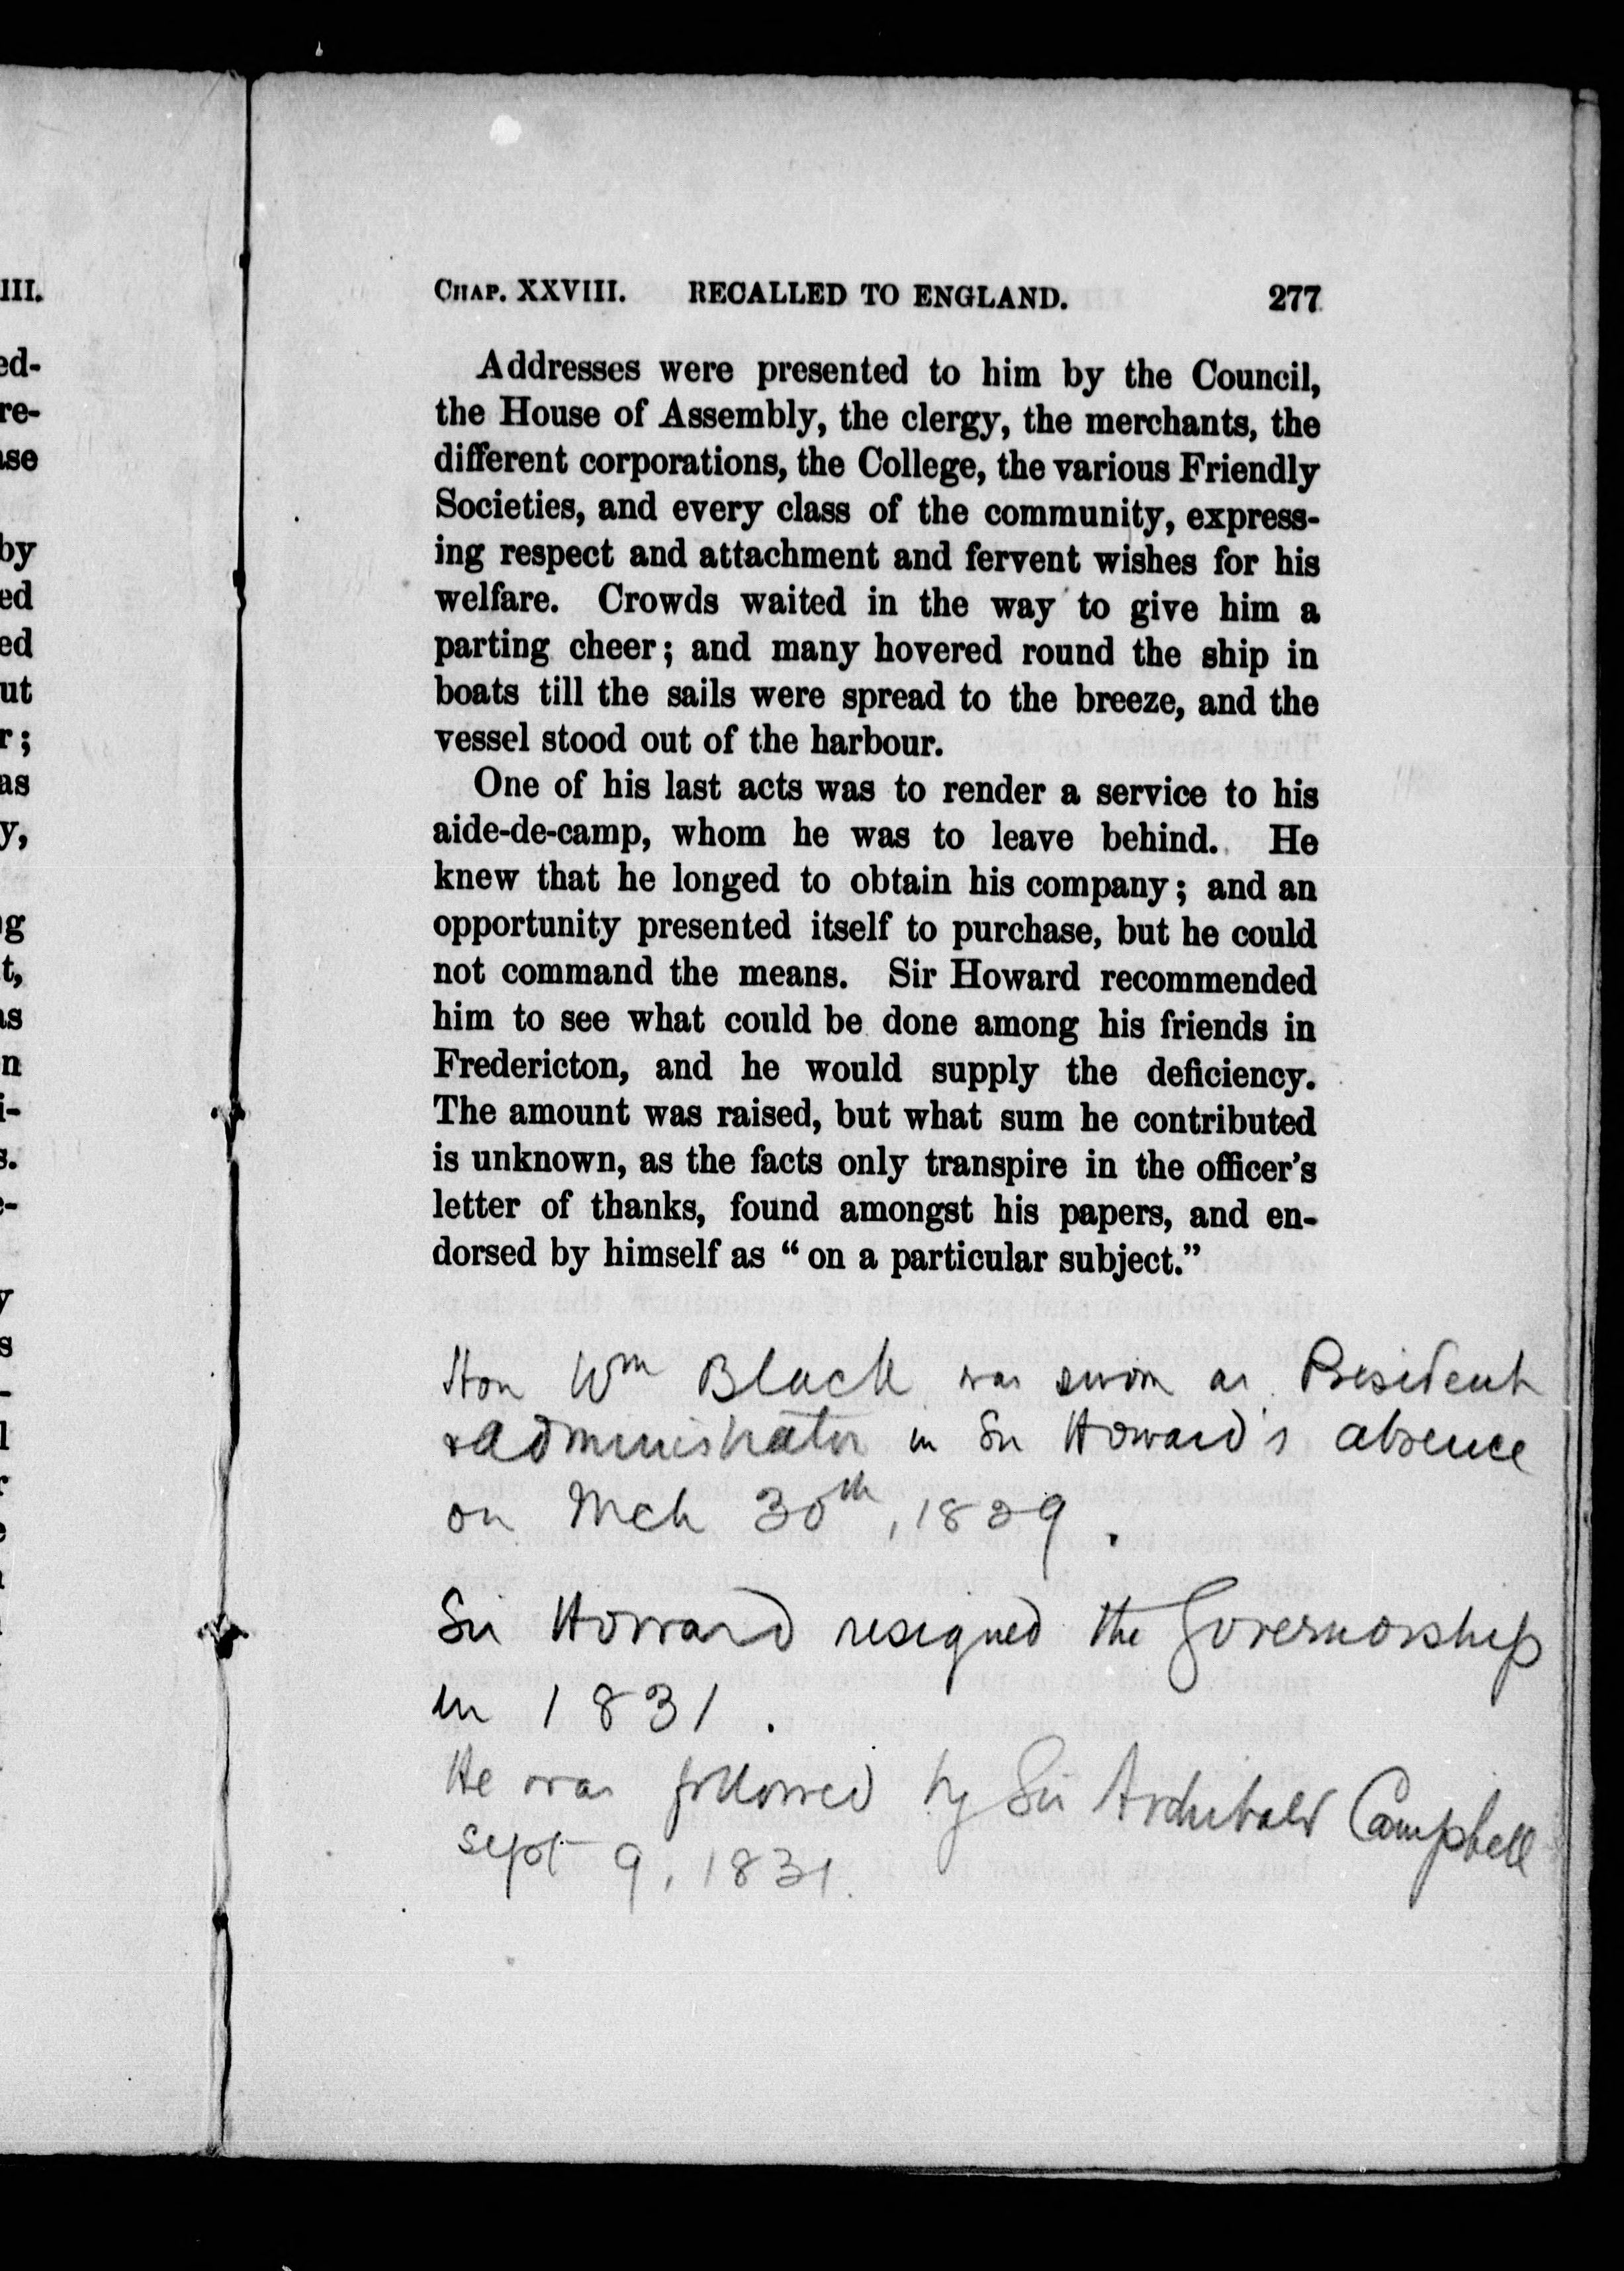 III.
ed-
re-
ase
by
ed
ed
ut
r;
as
y,
ng
t,
as
n
i-
s.
e-
y
s
-
l
r
e
CHAP. XXVIII. RECALLED TO ENGLAND. 277
Addresses were presented to him by the Council,
the House of Assembly, the clergy, the merchants, the
different corporations, the College, the various Friendly
Societies, and every class of the community, express-
ing respect and attachment and fervent wishes for his
welfare. Crowds waited in the way to give him a
parting cheer; and many hovered round the ship in
boats till the sails were spread to the breeze, and the
vessel stood out of the harbour.
One of his last acts was to render a service to his
aide-de-camp, whom he was to leave behind. He
knew that he longed to obtain his company; and an
opportunity presented itself to purchase, but he could
not command the means. Sir Howard recommended
him to see what could be done among his friends in
Fredericton, and he would supply the deficiency.
The amount was raised, but what sum he contributed
is unknown, as the facts only transpire in the officer's
letter of thanks, found amongst his papers, and en-
dorsed by himself as “on a particular subject.”
Hon Wm Black was sworn as President
& administrator in Sir Howard's absence
on Mch 30th, 1829.
Sir Howard resigned the Governorship
in 1831.
He was followed by Sir Archibald Campbell
Sept 9, 1831.